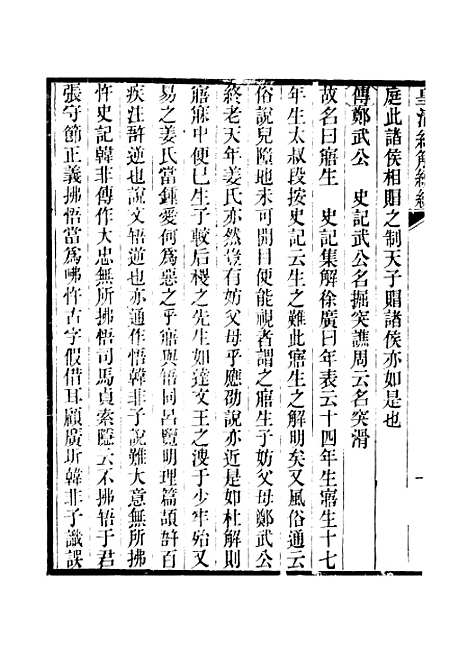 皇清經解續編
庭此諸侯相賵之制天子賵諸侯亦如是也
傳鄭武公　史記武公名掘突譙周云名突滑
故名曰寤生　史記集解徐廣曰年表云十四年生寤生十七
年生太叔段按史記云生之難此寤生之解明矣又風俗通云
俗說兒墮地未可開目便能視者謂之寤生子妨父母鄭武公
終老天年姜氏亦然豈有妨父母乎應劭說亦近是如杜解則
寤寐中便已生子較后稷之先生如達文王之溲于少牢殆又
易之姜氏當鍾愛何爲惡之乎寤與牾同呂覽明理篇頡𧦱百
疾注𧦱逆也說文牾逆也亦通作悟韓非子說難大意無所拂
忤史記韓非傳作大忠無所拂悟司馬貞索隱云不拂牾于君
張守節正義拂悟當爲咈忤古字假借耳顧廣圻韓非子識誤